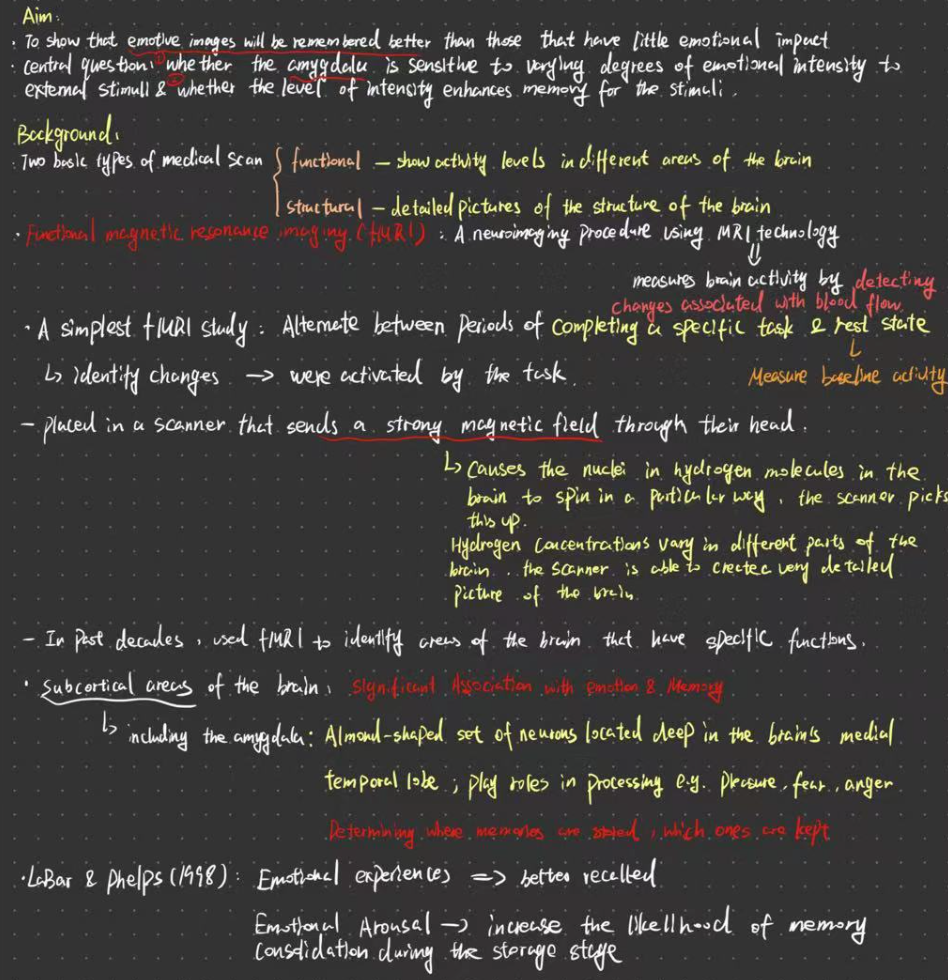 Aim:
· To show that emotive images will be remembered better than those that have little emotional impact
· central question: ① whether the amygdala is sensitive to varying degrees of emotional intensity to
external stimuli & ② whether the level of intensity enhances memory for the stimuli.
Background:
· Two basic types of medical scan { functional — show activity levels in different areas of the brain
structural — detailed pictures of the structure of the brain
· Functional magnetic resonance imaging (fMRI) : A neuroimaging procedure using MRI technology
⇓
measures brain activity by detecting
changes associated with blood flow.
· A simplest fMRI study : Alternate between periods of completing a specific task & rest state
↳ identify changes → were activated by the task.
↳ Measure baseline activity
– placed in a scanner that sends a strong magnetic field through their head.
↳ Causes the nuclei in hydrogen molecules in the
brain to spin in a particular way, the scanner picks
this up.
Hydrogen concentrations vary in different parts of the
brain. the scanner is able to created very detailed
picture of the brain.
– In past decades, used fMRI to identify areas of the brain that have specific functions.
· Subcortical areas of the brain: Significant Association with emotion & Memory
↳ including the amygdala: Almond-shaped set of neurons located deep in the brain's medial
temporal lobe ; play roles in processing e.g. pleasure, fear, anger
Determining where memories are stored, which ones are kept
· LaBar & Phelps (1998) : Emotional experiences ⇒ better recalled
Emotional Arousal → increase the likelihood of memory
consolidation during the storage stage